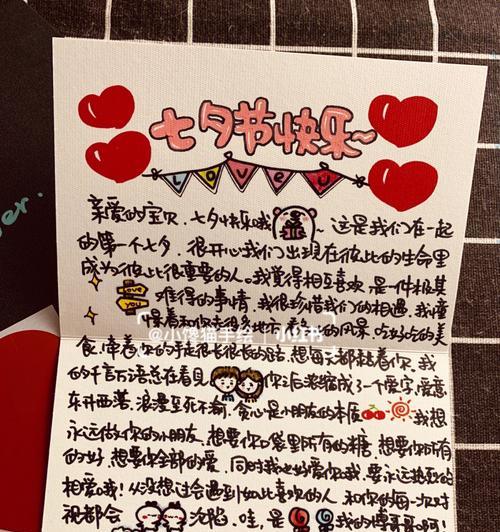 七夕节快乐~
Love u
亲爱的宝贝,七夕快乐哦,这是我们在一起
的第一个七夕,很开心我们出现在彼此的生命里
成为彼此很重要的人。我觉得相互喜欢是一件极其
love you
难得的事情,我很珍惜我们的相遇,我憧
憬着和你去很多地方看 的风景 吃好吃的美
@小馋猫手绘 小红书
食,牵着你的手走很长很长的路,想每天都黏着你,我
的千言万语总在看见你后浓缩成了一个爱字,爱意
东升西落,浪漫至死不渝,贪心是小朋友的本质 我想
永远做你的小朋友,想要你口袋里所有的糖,想要你所有
的好,想要你全部的爱,同时我也好爱你哦,要永远热烈的
相爱哦!从没想过会遇到如此喜欢的人,和你的每一次对
视都会 沦陷,哇,是 我的
ver.